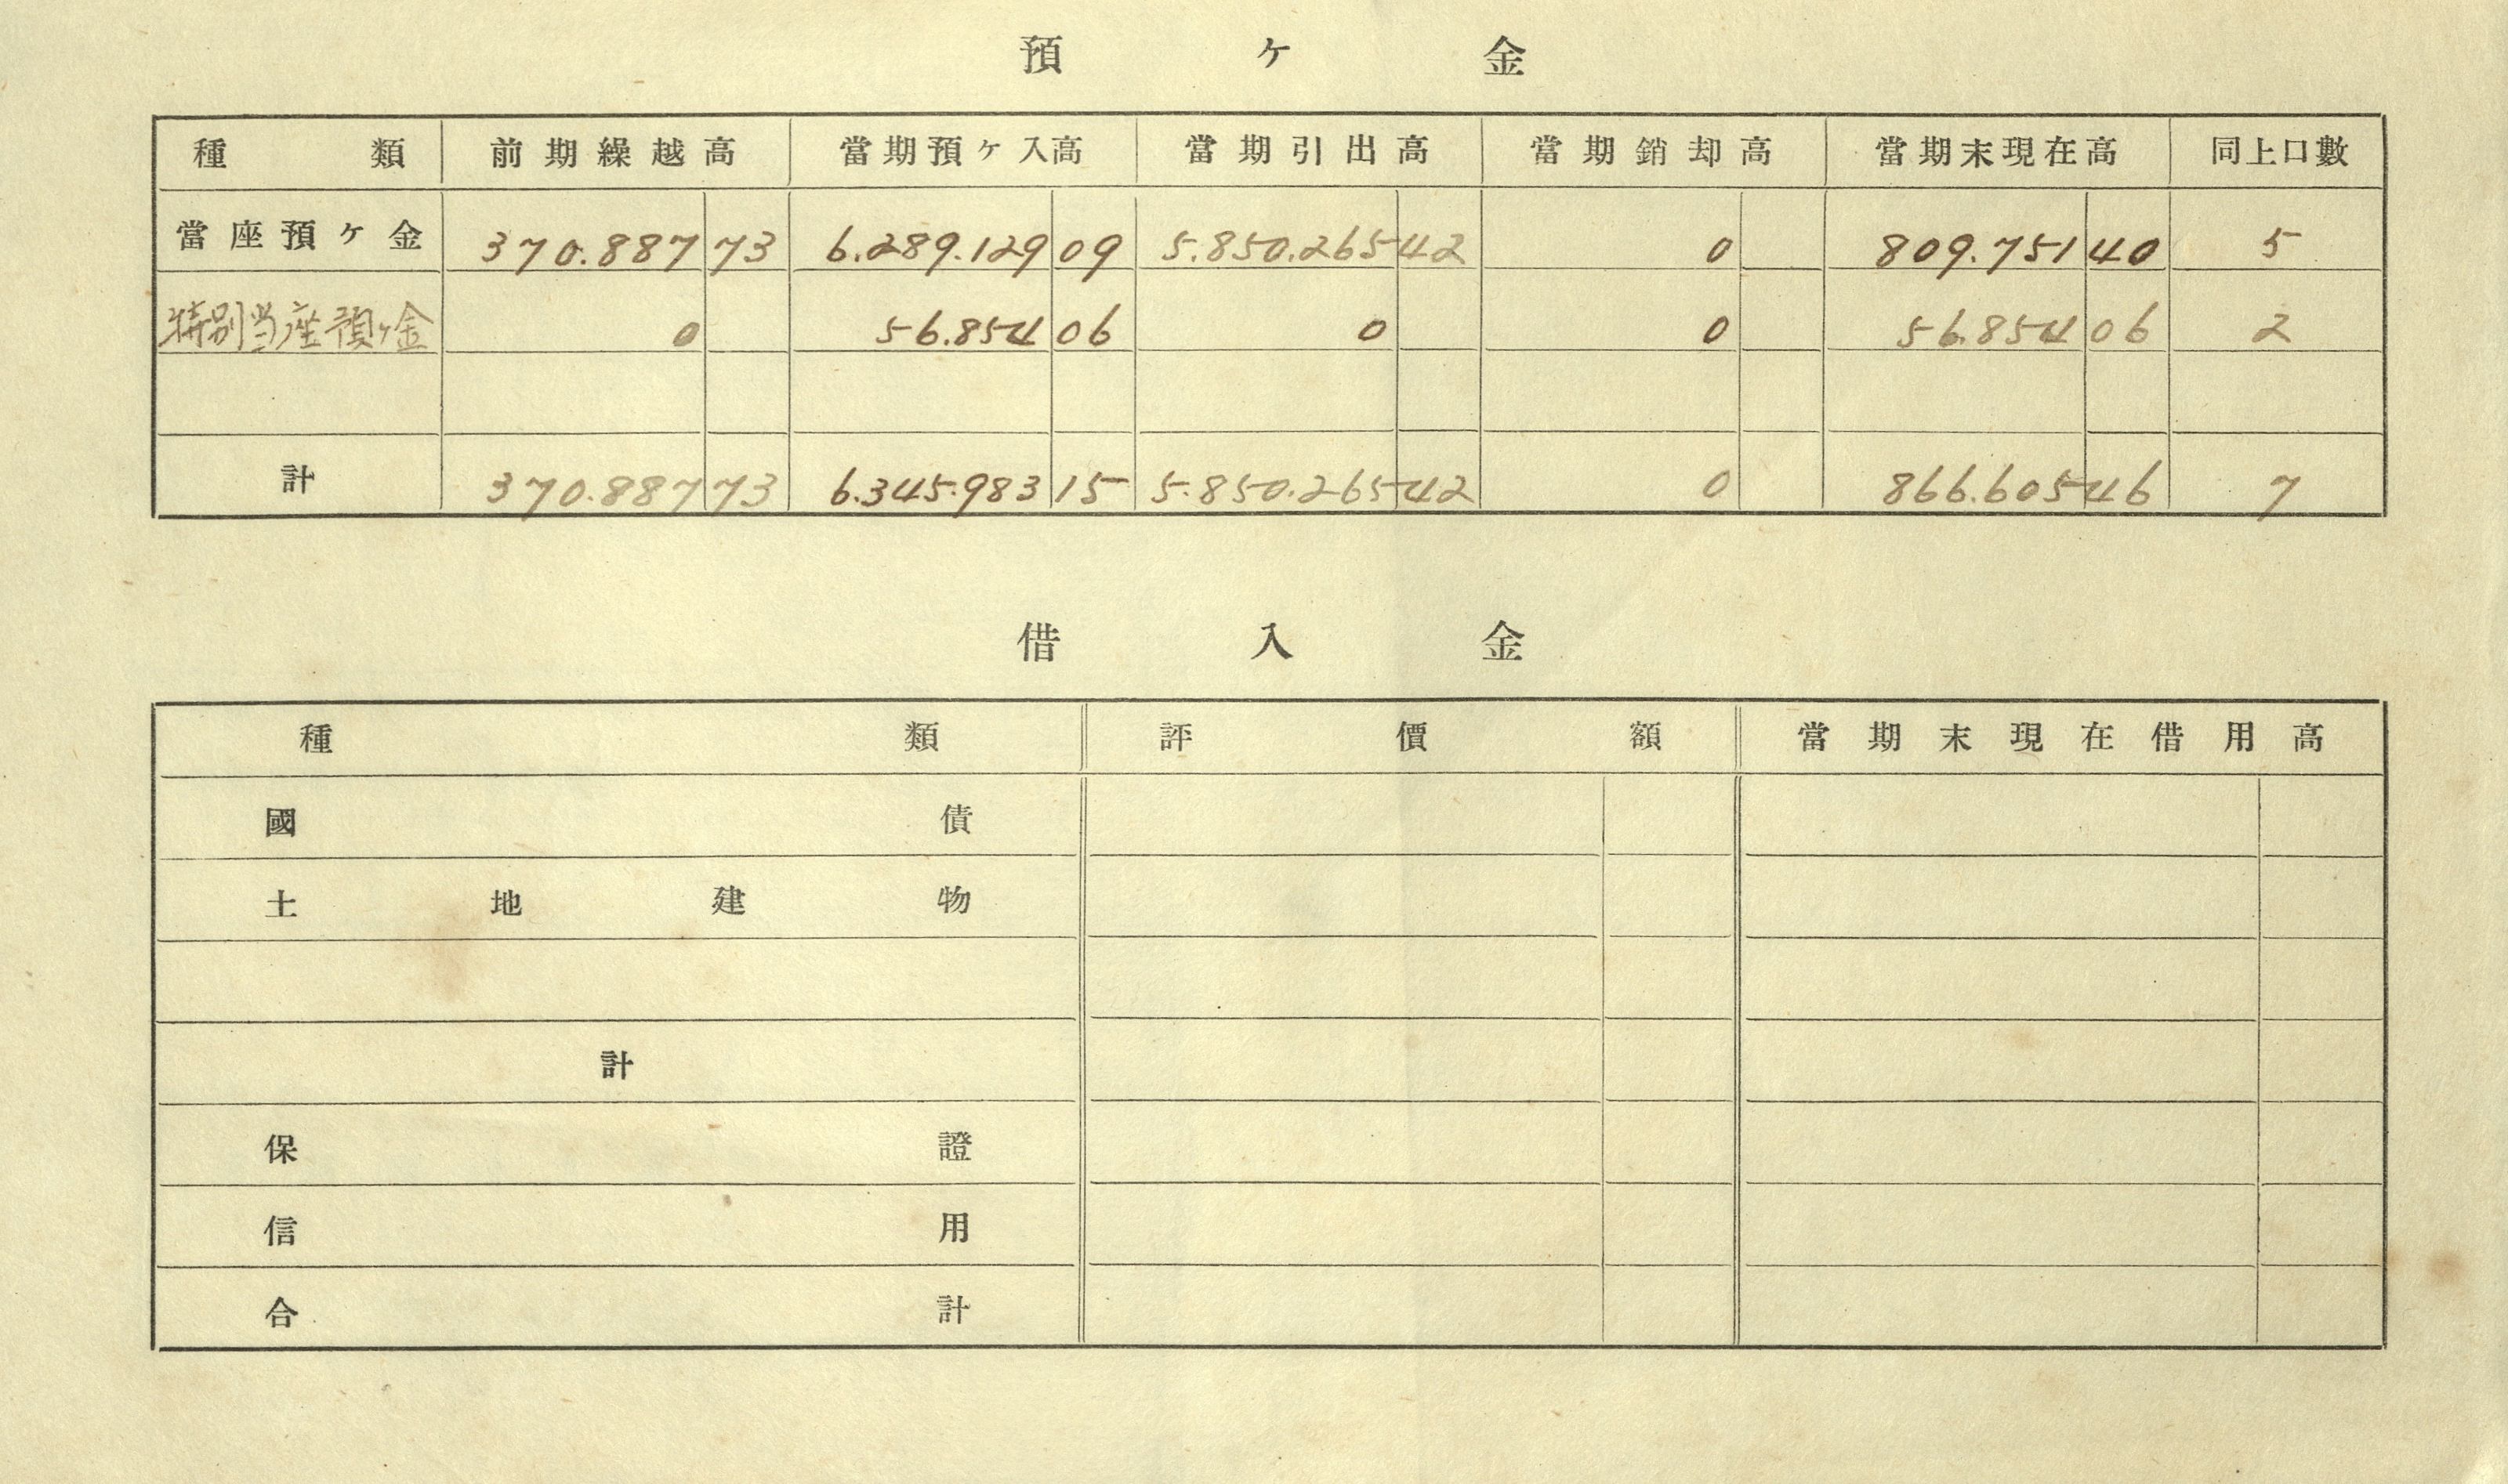 預ケ金
種類 前期繰越高 當期預ケ入高 當期引出高 當期銷却高 當期末現在高 同上口數
當座預ケ金 370.887 73 6.289.129 09 5.850.265 42 0 809.751 40 5
特別当座預ケ金 0 56.854 06 0 0 56.854 06 2
計 370.887 73 6.345.983 15 5.850.265 42 0 866.605 46 7
借入金
種類 評價額 當期末現在借用高
國債
土地建物
計
保證
信用
合計